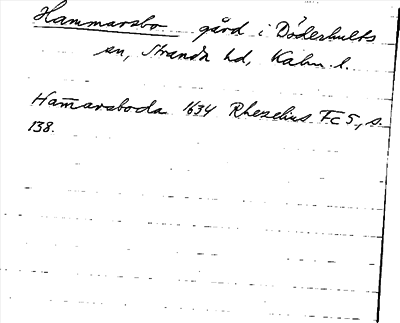 Hammarsbo gård i Döderhults
sn, Stranda hd, Kalm. l.
Ham̄arsboda 1634 Rhezelius Fc 5, s.
138.